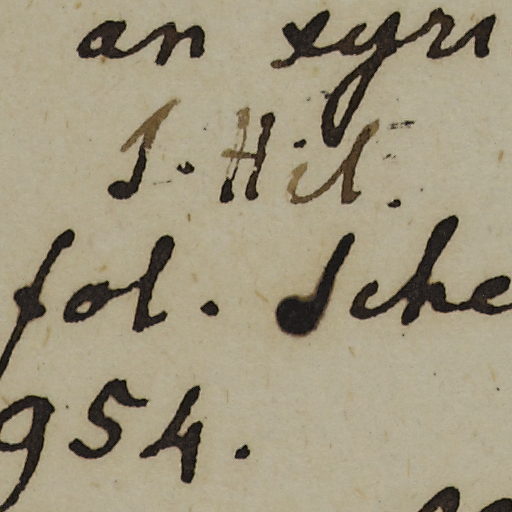 an syri
S. Hil.
fol. Sche
954.